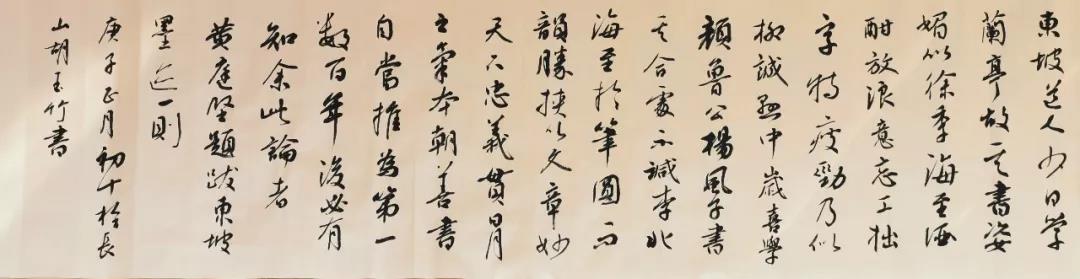 東坡道人少日学
蘭亭故其書姿
媚似徐季海至酒
酣放浪意忘工拙
字特瘦勁乃似
柳誠懸中歲喜學
顏魯公楊風子書
其合處不減李北
海至於筆圓而
韻勝挾以文章妙
天下忠義貫日月
之氣本朝善書
自當推為第一
数百年後必有
知余此論者
黄庭堅題跋東坡
墨迹一則
庚子正月初十於長
山胡玉竹書